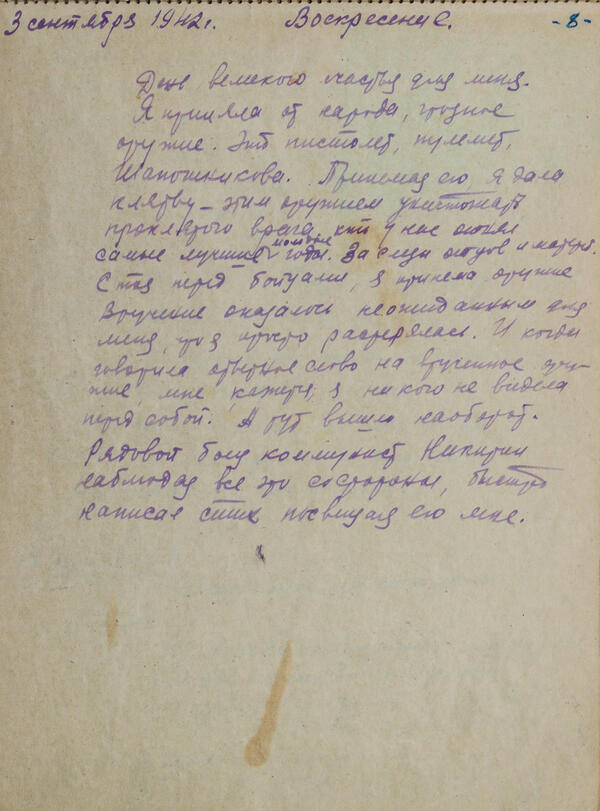 3 сентября 1942г. Воскресение. -8-
День великого счастья для меня.
Я приняла от народа, грозное
оружие. Это пистолет, пулемет,
Шапошникова. Принимая его я дала
клятву – этим оружием уничтожать
проклятого врага, кто у нас отнял
самые лучшие молодые годы. За слезы отцов и матерей.
Стоя перед бойцами, я приняла оружие
Вручение оказалось неожиданным для
меня, что я просто растерялась. И когда
говорила ответное слово на врученное ору-
жие, мне кажется, я никого не видела
перед собой. А тут вышло наоборот.
Рядовой боец коммунист Никитин
наблюдая все это со стороны, быстро
написал стих посвящая его мне.